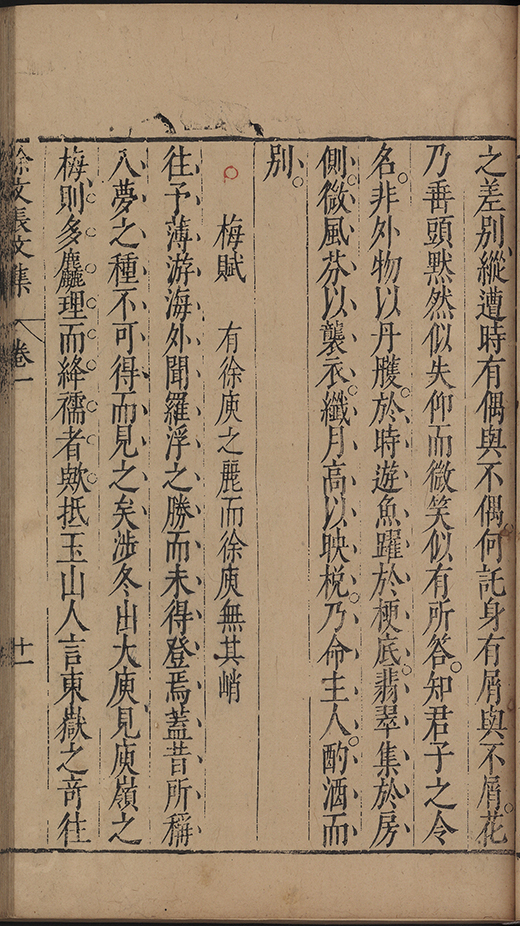 之差別縱遭時有偶與不偶何託身有屑與不屑花
乃垂頭默然似失仰而微笑似有所答知君子之令
名非外物以丹雘於時遊魚躍於梗底翡翠集於房
側微風芬以襲衣纖月高以映梲乃命主人酌酒而
別
梅賦 有徐庾之麗而徐庾無其峭
往予薄游海外聞羅浮之勝而未得登焉蓋昔所稱
入夢之種不可得而見之矣涉冬出大庾見庾嶺之
梅則多麤理而絳襦者歟抵玉山人言東嶽之奇往
徐文長文集 卷一 十一